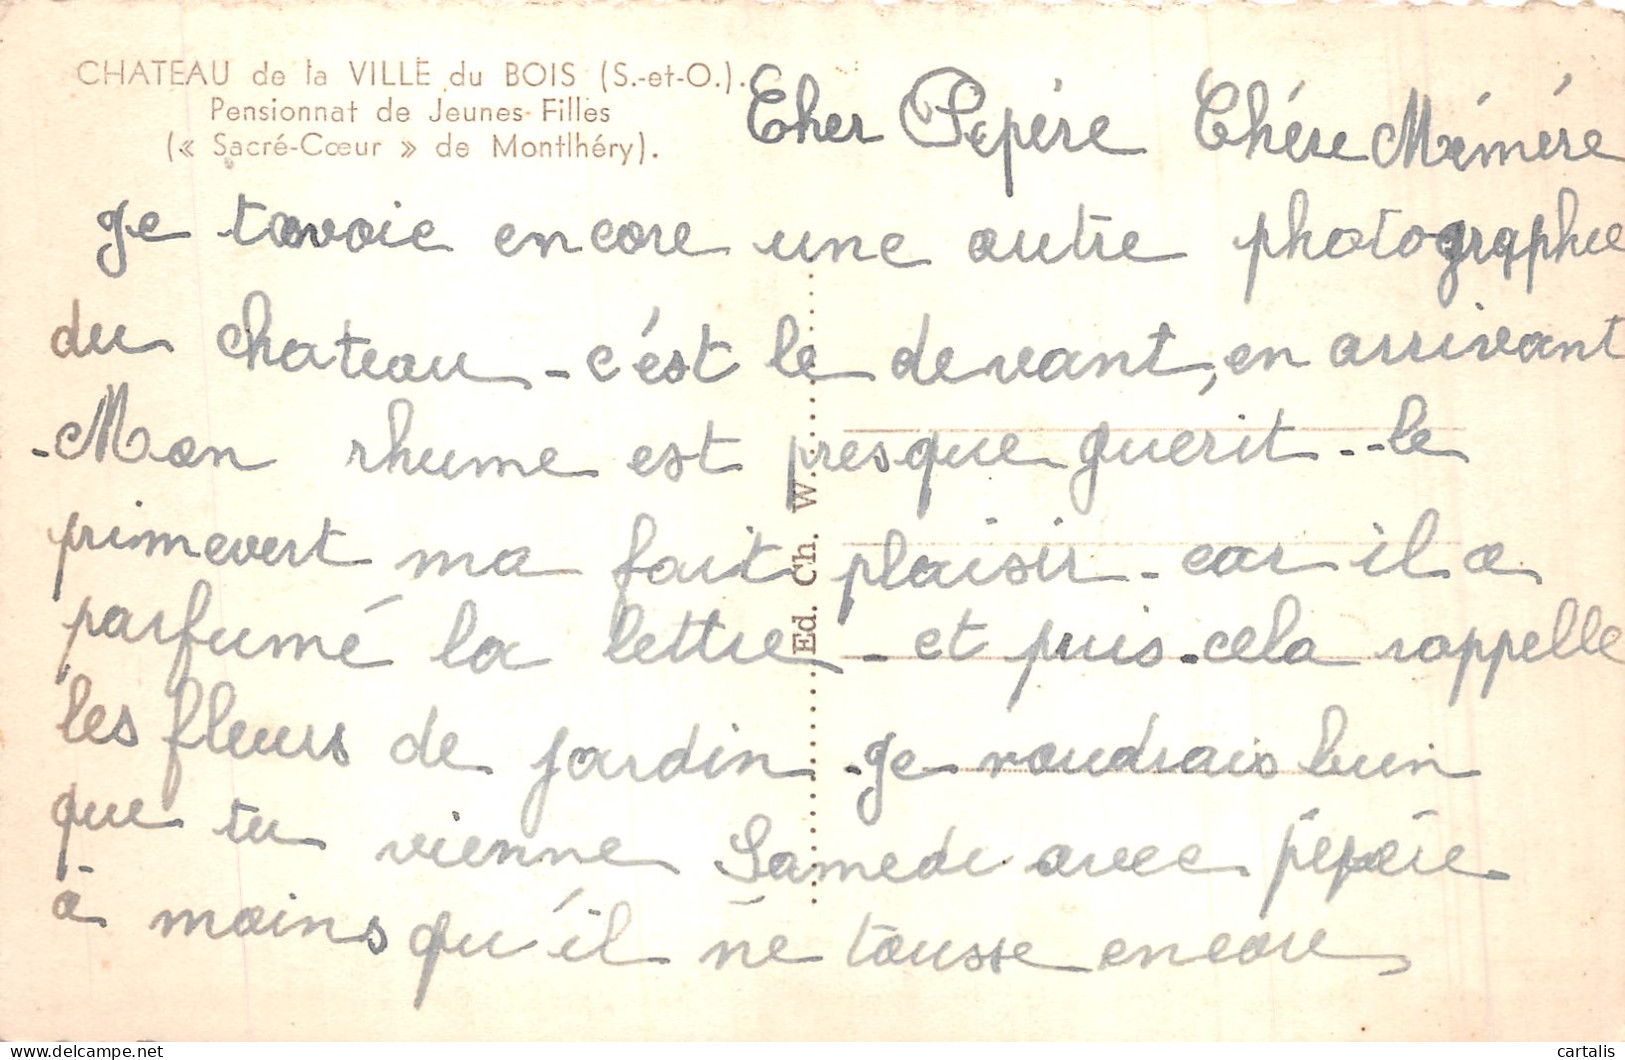 CHATEAU de la VILLE du BOIS (S.-et-O.).
Pensionnat de Jeunes Filles
(« Sacré-Cœur » de Montlhéry).
Cher Pepére Chére Mémére
Je tavoie encore une autre photographie
du chateau - c'ést le devant, en arrivant
- Mon rhume est presque guérit - le
primevert ma fait plaisir - car il a
parfumé la lettre - et puis - cela rappelle
les fleurs de jardin - Je voudrais bien
que tu vienne Samedi avec pépére
à moins qu'il ne tousse encore
Ed. Ch. W.
cartalis